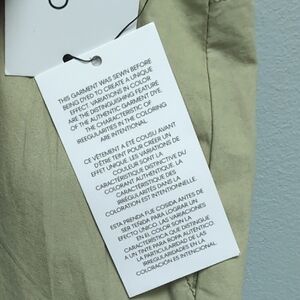 THIS GARMENT WAS SEWN BEFORE
BEING DYED TO CREATE A UNIQUE
EFFECT. VARIATIONS IN COLOR
ARE THE DISTINGUISHING FEATURE
OF THE AUTHENTIC GARMENT DYE.
THE CHARACTERISTIC OF
IRREGULARITIES IN THE COLORING
ARE INTENTIONAL
CE VÊTEMENT A ÉTÉ COUSU AVANT
D'ÊTRE TEINT POUR CRÉER UN
EFFET UNIQUE. LES VARIATIONS DE
COULEUR SONT LA
CARACTÉRISTIQUE DISTINCTIVE DU
COLORANT AUTHENTIQUE. LA
CARACTÉRISTIQUE DES
IRRÉGULARITÉS DANS LA
COLORATION EST INTENTIONNELLE.
ESTA PRENDA FUE COSIDA ANTES DE
SER TEÑIDA PARA LOGRAR UN
EFECTO ÚNICO. LAS VARIACIONES
EN EL COLOR SON LA
CARACTERÍSTICA QUE DISTINGUE
A UN TINTE PARA ROPA AUTÉNTICO.
LA PARTICULARIDAD DE LAS
IRREGULARIDADES EN LA
COLORACIÓN ES INTENCIONAL.